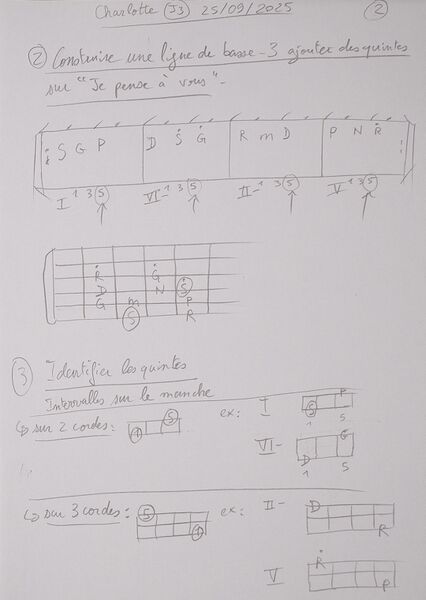 Charlotte J3 25/09/2025 2
2 Construire une ligne de basse_3 ajouter des quintes
sur "Je pense à vous"-
S G P D Ṡ Ġ R m D P N Ṙ
I 1 3 5 VI- 1 3 5 II- 1 3 5 V 1 3 5
Ṙ Ġ
D N Ṡ
G m P
S R
3 Identifier les quintes
Intervalles sur le manche
↳ sur 2 cordes: 1 5 ex: I S P
1 5
VI- D G
1 5
↳ sur 3 cordes: 5 1 ex: II- D R
V Ṙ P